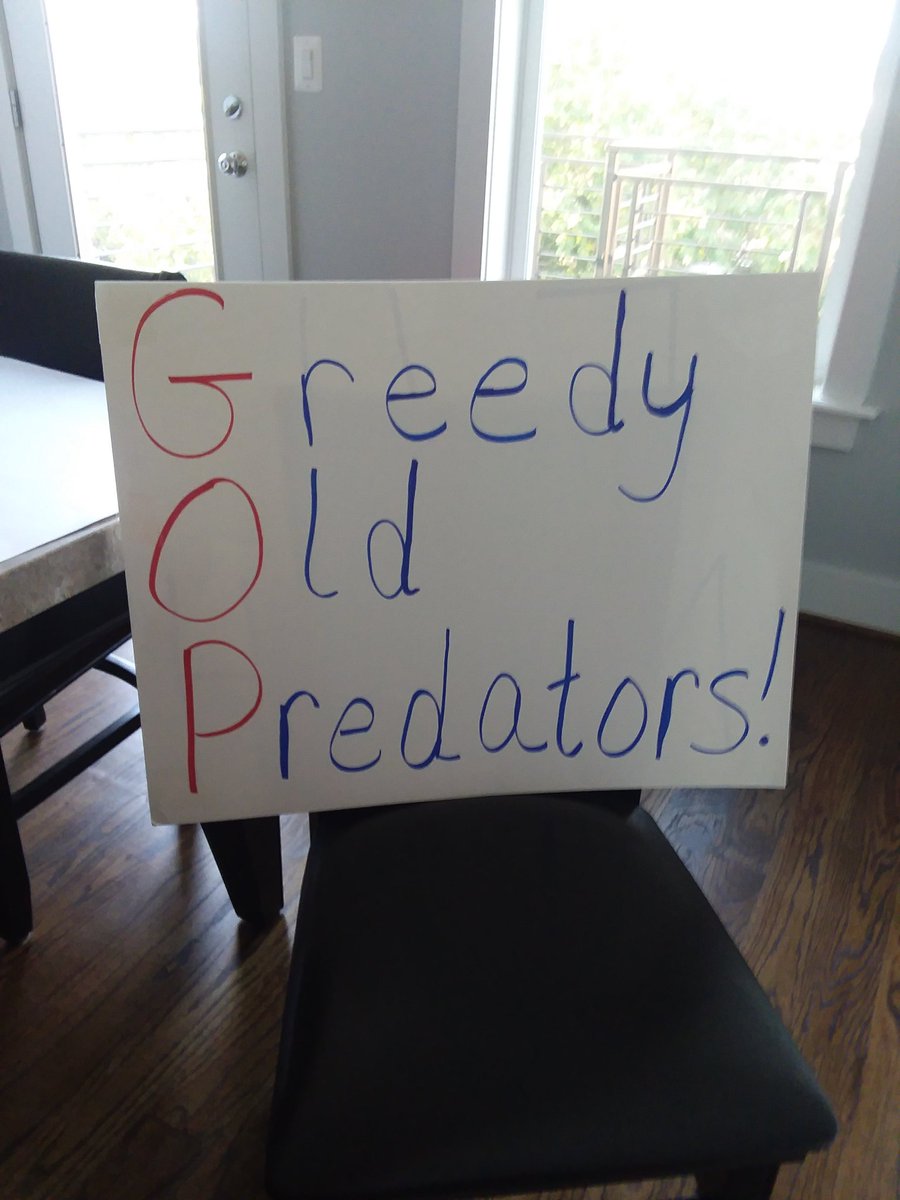 Greedy
Old
Predators!